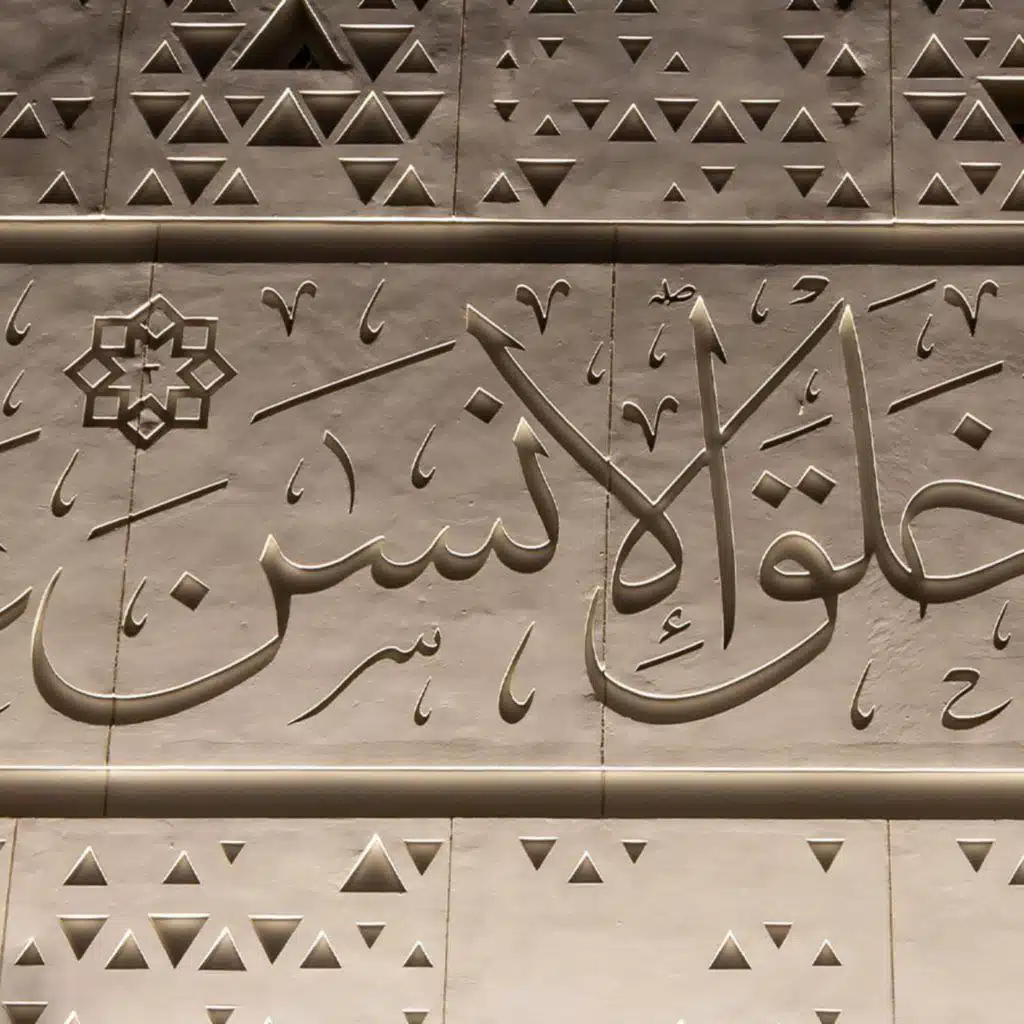 خَلَقَ ٱلْإِنسَٰنَ